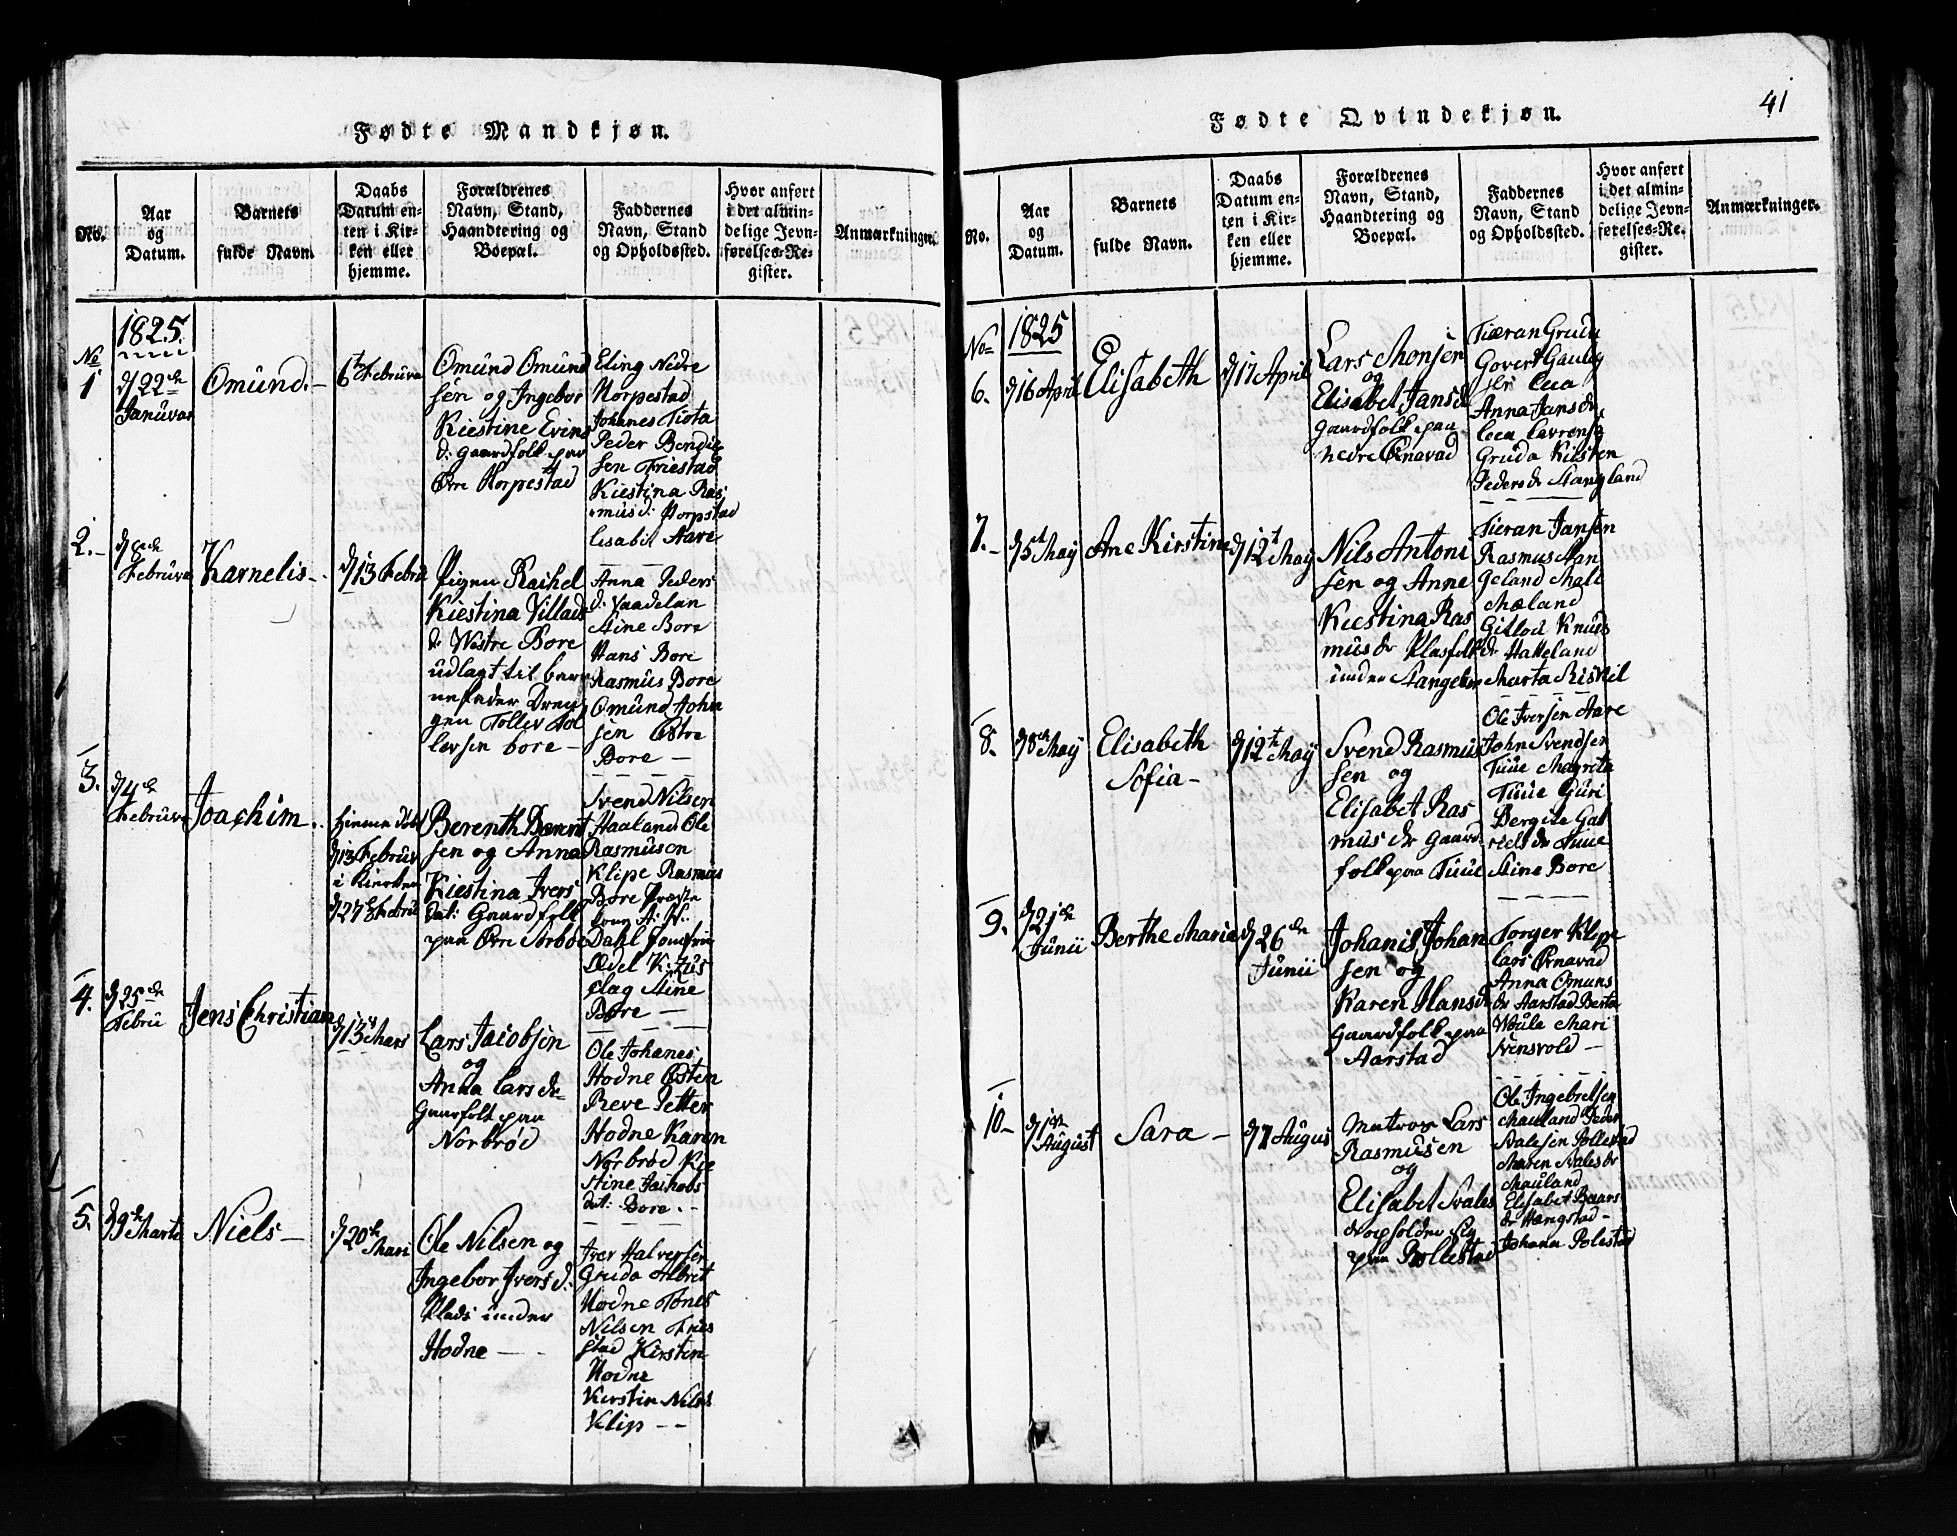 Fødte Mandkjøn.
No.
Aar
og
Datum.
Barnets
fulde Navn.
Daabs
Datum en-
ten i Kir-
ken eller
hjemme.
Forældrenes
Navn, Stand,
Haandtering og
Boepæl.
Faddernes
Navn, Stand
og Opholdssted.
Hvor anført
i det almin-
delige Jevn-
førelses-Re-
gister.
Anmærkninger.
1825.
No
1
d 22de
Januvar
Omünd.
6te Februva
Omünd Omünd
sen og Ingebor
Kiestine Evind
d: Gaardfolk paa
Øvre Horpestad
Eling Nedre
Horpestad
Johanes Tiøta
Peder Bendic
sen Friestad
Kiestina Ras
musd: Horpstad
Lisabit Aare
2.
d 8de
Februva
Karnelis
d 13 Febru
Pigen Rachel
Kiestina Villads
d: Westre Bore
udlagt til barn
nefader Dren
gen Tollev Tol
levsen bore
Anna Peders
d: Vaadelan
Stine Bore
Hans Bore
Rasmus Bore
Omünd John
sen Østre
Bore
3.
d 4de
Februva
Joachim.
hiemme døbt
d 13 Februv
i Kirchen
d 27de Febru
Berenth Bernt
sen og Anna
Kiestina Ivers
Dat: Gaardfolk
paa Øvre Sørbøe
Svend Nilsen
Haaland Ole
Rasmusen
Klipe Rasmus
Bore Præste
A: W:
Dahl Jomfru
Ædel K: Zus
flag Stine
Bore
4.
d 25de
Febru
Jens Christian
d 13 Mars
Lars Jacobsen
og
Anna Lars dr
Gaarfolk paa
Nordbrød
Ole Johanes
Hodne Østen
Reve Petter
Hodne Karen
Norbrød Kie
stine Jachobs
dat: Bore.
5.
d 9de Marts
Niels
d 20de Mars
Ole Nilsen og
Ingebor Ivers d:
Plads under
Hodne
Iver Halversen
Gruda Albrit
Hodne Tønes
Nilsen Fries
stad Kirsten
Hodne
Kirstin Nilsd
Klip
41
Fødte Qvindekjøn.
No.
Aar
og
Datum.
Barnets
fulde Navn.
Daabs
Datum en-
ten i Kir-
ken eller
hjemme.
Forældrenes
Navn, Stand,
Haandtering og
Boepæl.
Faddernes
Navn, Stand
og Opholdssted.
Hvor anført
i det almin-
delige Jevn-
førelses-Re-
gister.
Anmærkninger.
No
1825
6.
d 16 April
Elisabeth
d 17 April
Lars Monsen
og
Elisabet Jansd
Gaardfolk paa
nedre Øxnavad
Tiæran Gruda
Govert Gauleg
Anna Jans dr
Lavrens
Gruda Kirsten
Peders dr Stangland
7.
d 5t May
Ane Kirstine
d 12t May
Nils Antoni
sen og Anne
Kiestina Ras
mus dr Plasfolk
under Stangelan
Tieran Jansen
Rasmus Stan
geland Mall
Mæland
Gitlou Knuds
dr Hatteland
Marta Riskil
8.
d 8de May
Elisabeth
Sofia
d 12te May
Svend Rasmus
sen og
Elisabet Ras
mus dr Gaard
folk paa Tuue
Ole Iversen Aare
John Svendsen
Tuue Magreta
Tuue Guri
Bergite Gab
riels dr Tuue
Stine Bore
9.
d 21de
Junii
Berthe Marie
d 26de
Junii
Johanis Johan
sen og
Karen Hansd
Gaardfolk paa
Aarstad
Torger Klippe
Lars Øxnavad
Anna Omuns
dr Aarstad Berta
Wæula Mari
Svensvold
10
d 1ste
August
Sara
d 7 Augus
Matros Lars
Rasmusen
og
Elisabet Svales
dr opholdne sig
paa Pollestad
Ole Ingebretsen
Mauland Peder
Svalesen Pollestad
Maren Svales dr
Mauland
Elisabet Baars
dr Hængstad
Johana Polestad